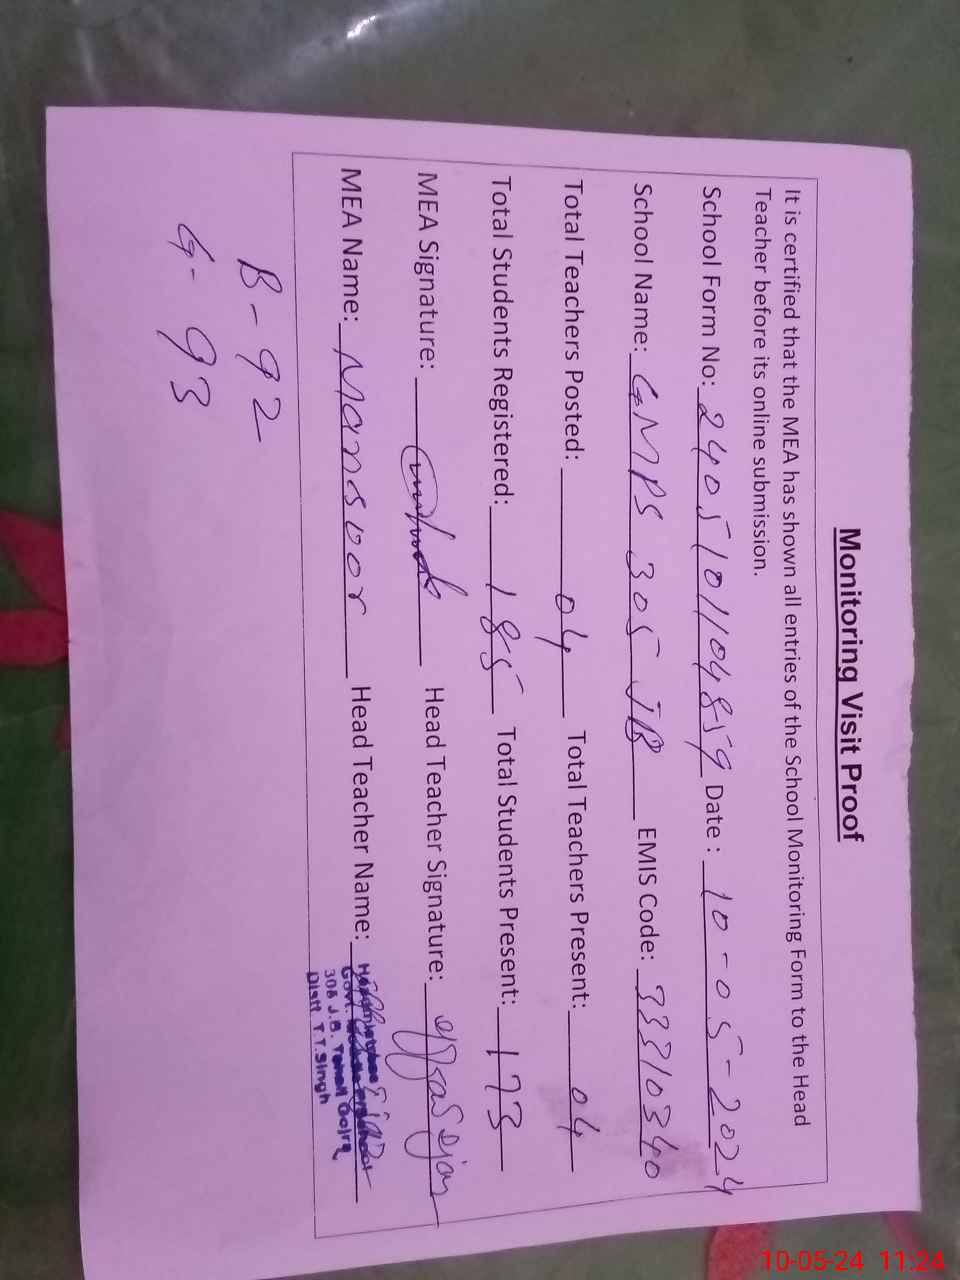 Monitoring Visit Proof
It is certified that the MEA has shown all entries of the School Monitoring Form to the Head
Teacher before its online submission.
School Form No: 2405101104859 Date : 10-05-2024
School Name: GMPS 305 JB EMIS Code: 33310340
Total Teachers Posted: 04 Total Teachers Present: 04
Total Students Registered: 185 Total Students Present: 173
MEA Signature: Head Teacher Signature:
MEA Name: Mansoor Head Teacher Name:
Govt.
J.B.
Distt. T.T.Singh
B-92
G-93
10-05-24 11:24